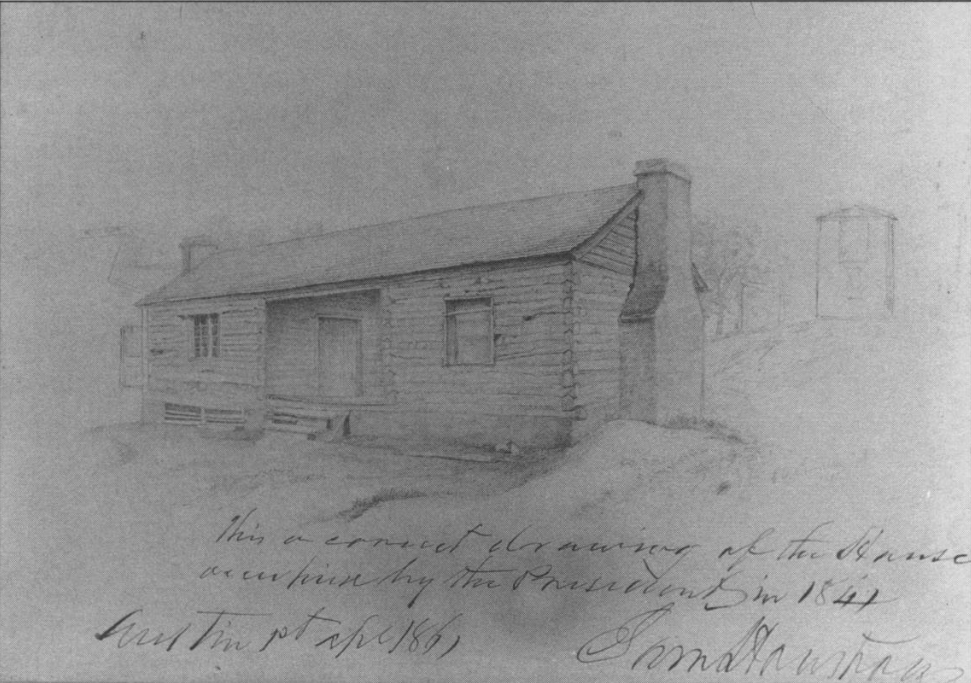 This a correct drawing of the House
occupied by the President in 1841
Austin 1st apl 1861
Sam Houston